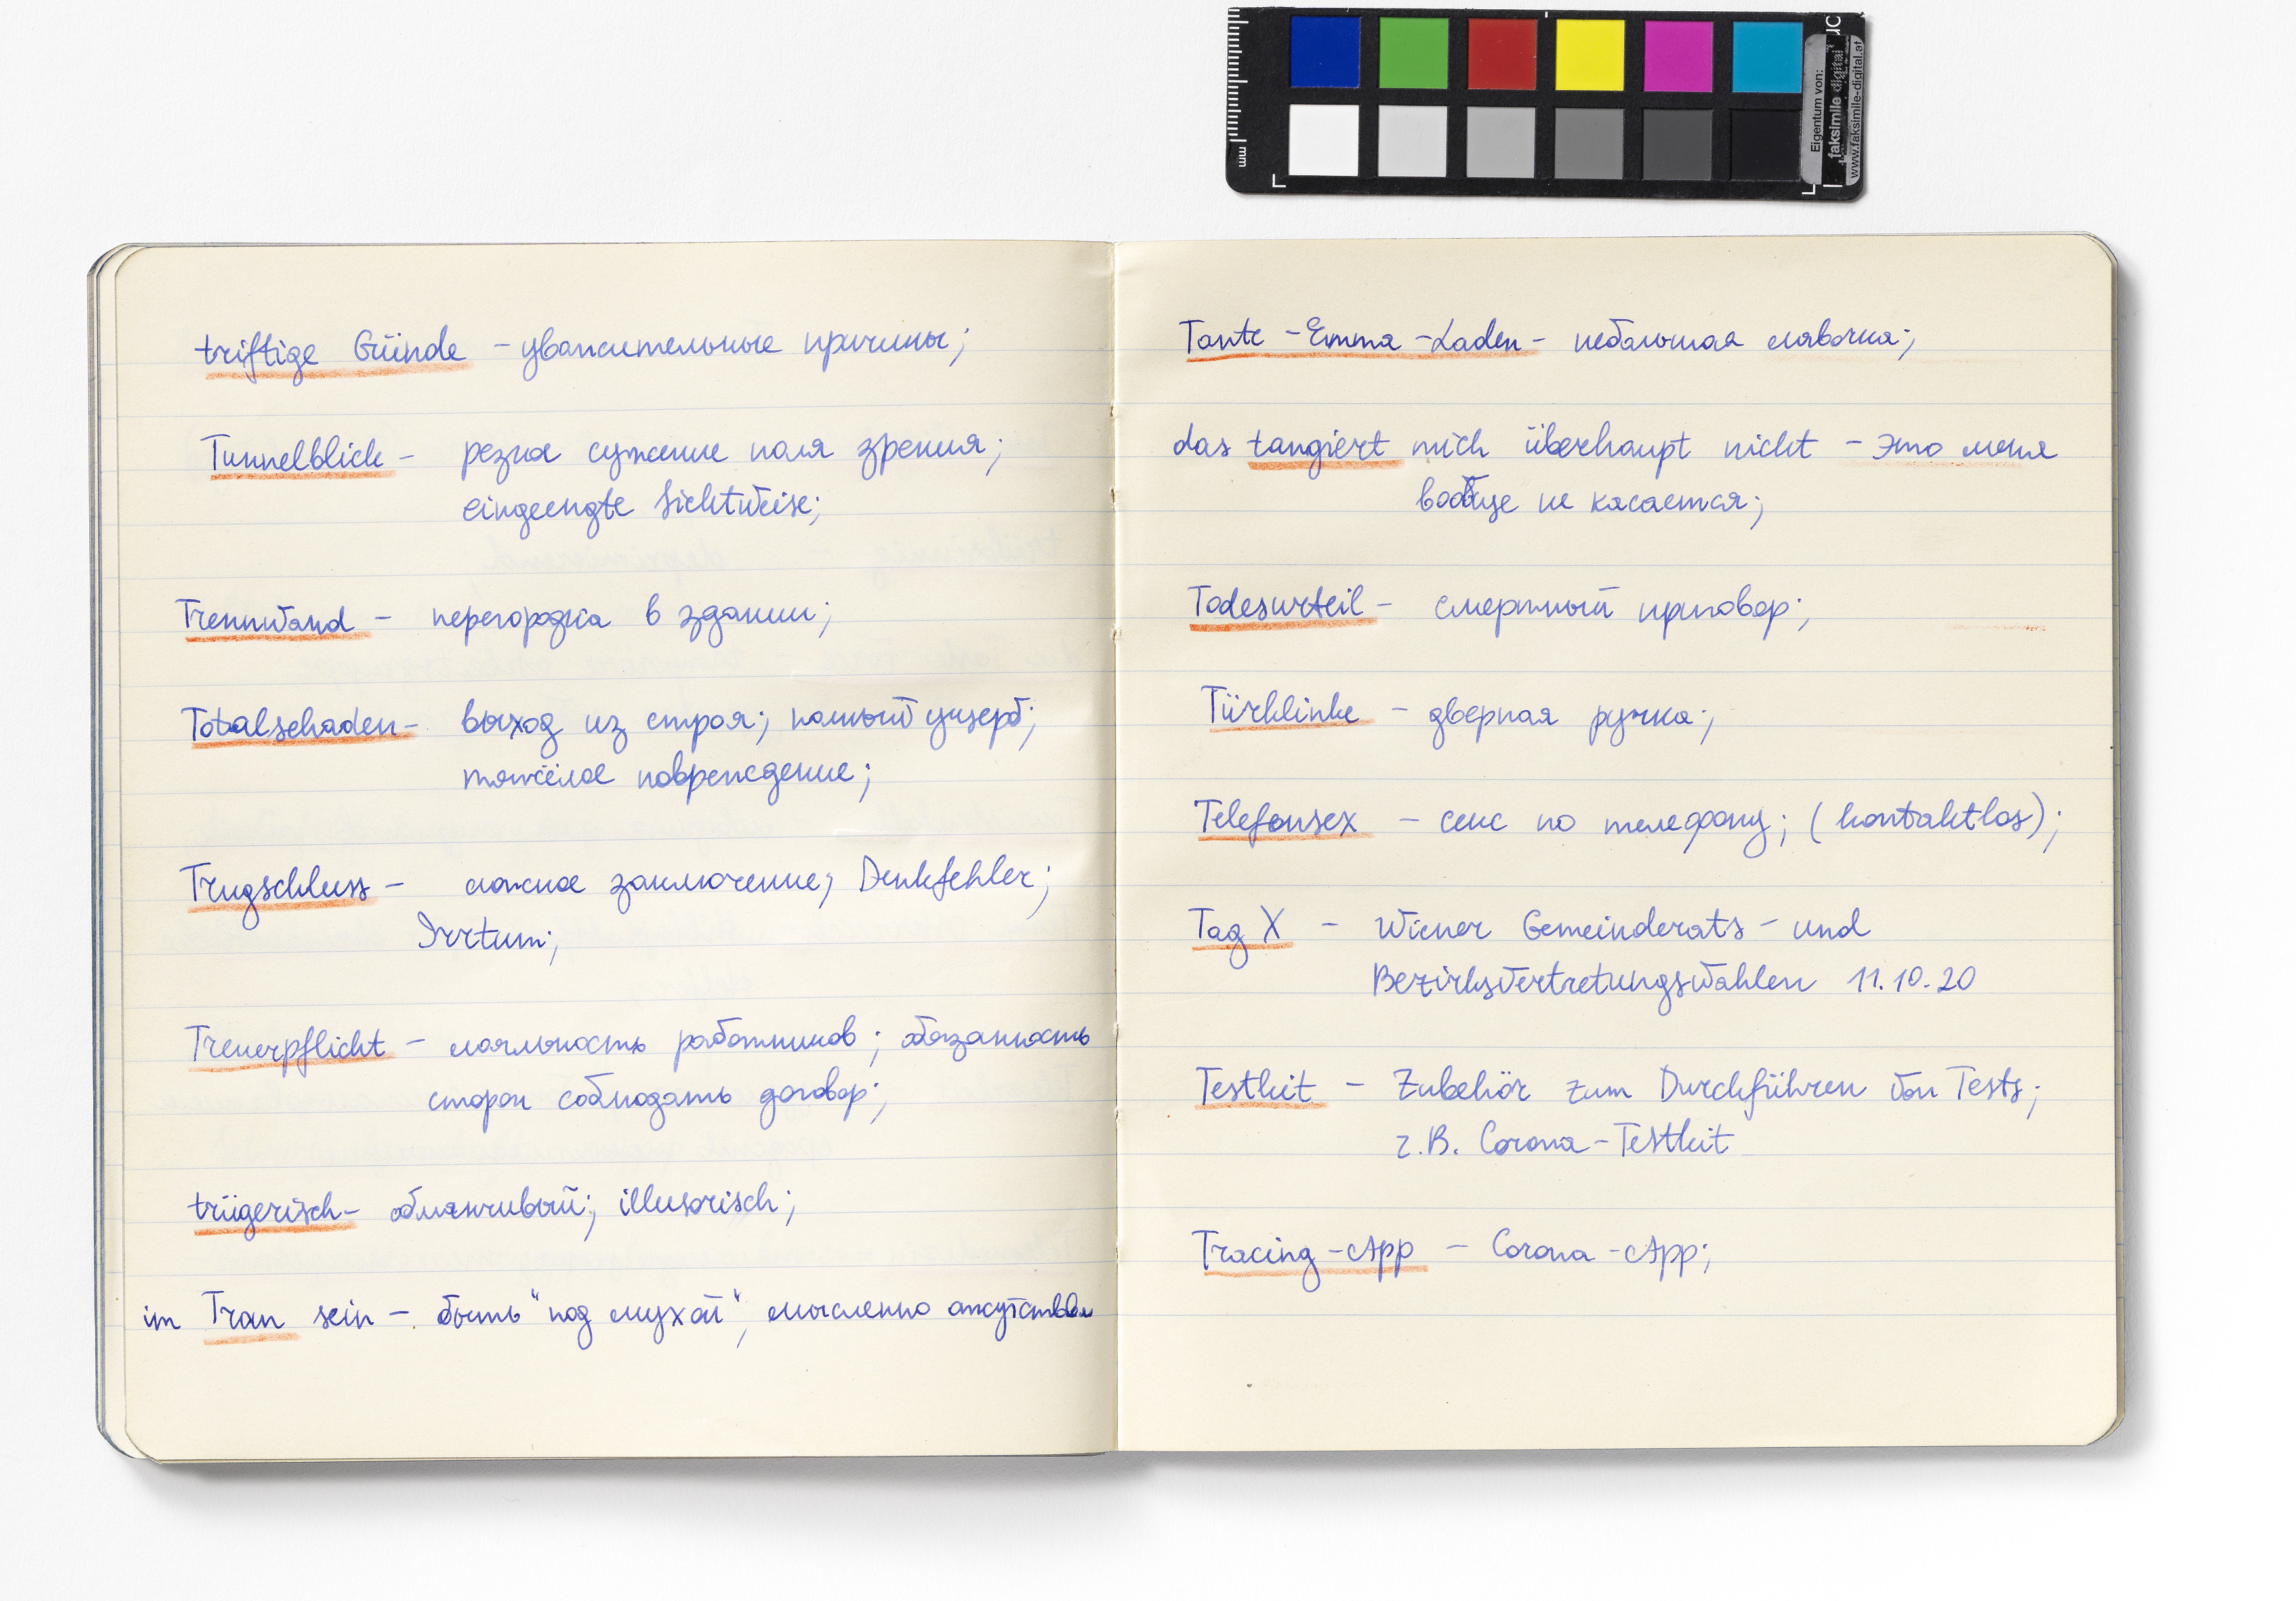 triftige Gründe - уважительные причины;
Tunnelblick - резкое сужение поля зрения;
eingeengte Sichtweise;
Trennwand - перегородка в здании;
Totalschaden - выход из строя; полный ущерб;
тяжёлое повреждение;
Trugschluss - ложное заключение, Denkfehler;
Irrtum;
Treuerpflicht - лояльность работников; обязанность
сторон соблюдать договор;
trügerisch - обманчивый; illusorisch;
im Tran sein - быть "под мухой", мысленно отсутствовать
Tante - Emma - Laden - небольшая лавочка;
das tangiert mich überhaupt nicht - это меня
вообще не касается;
Todesurteil - смертный приговор;
Türklinke - дверная ручка;
Telefonsex - секс по телефону; (kontaktlos);
Tag X - Wiener Gemeinderats - und
Bezirksvertretungswahlen 11.10.20
Testkit - Zubehör zum Durchführen von Tests;
z.B. Corona-Testkit
Tracing-App - Corona-App;
mm
Eigentum von:
faksimile digital
www.faksimile-digital.at